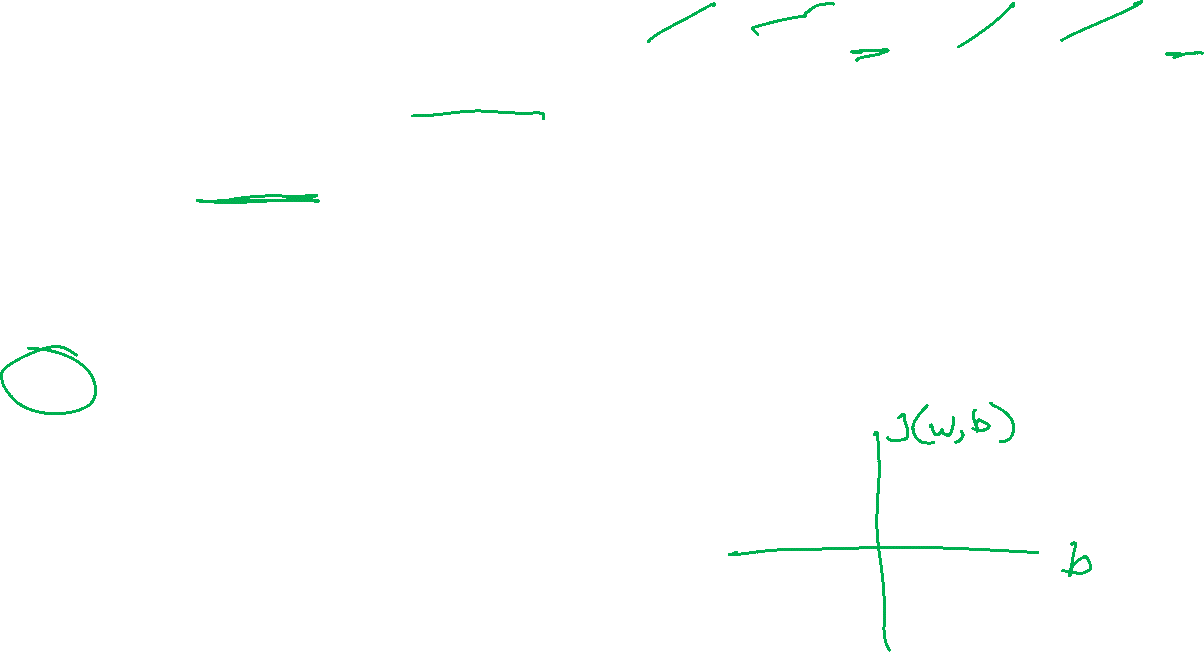 J(w,b)
b